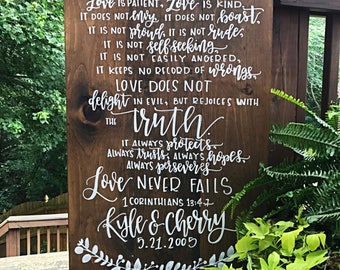 Love is PATIENT, Love IS KIND.
IT DOES NOT envy, IT DOES NOT boast,
IT IS NOT proud. IT IS NOT rude,
IT IS NOT self-seeking,
IT IS NOT EASILY ANGERED,
IT KEEPS NO RECORD OF wrongs.
LOVE DOES NOT
delight IN EVIL, BUT REJOICES WITH
THE truth.
IT ALWAYS protects,
ALWAYS trusts, ALWAYS hopes,
ALWAYS perseveres.
Love NEVER FAILS
1 CORINTHIANS 13:4-7
Kyle & Cherry
5.21.2005